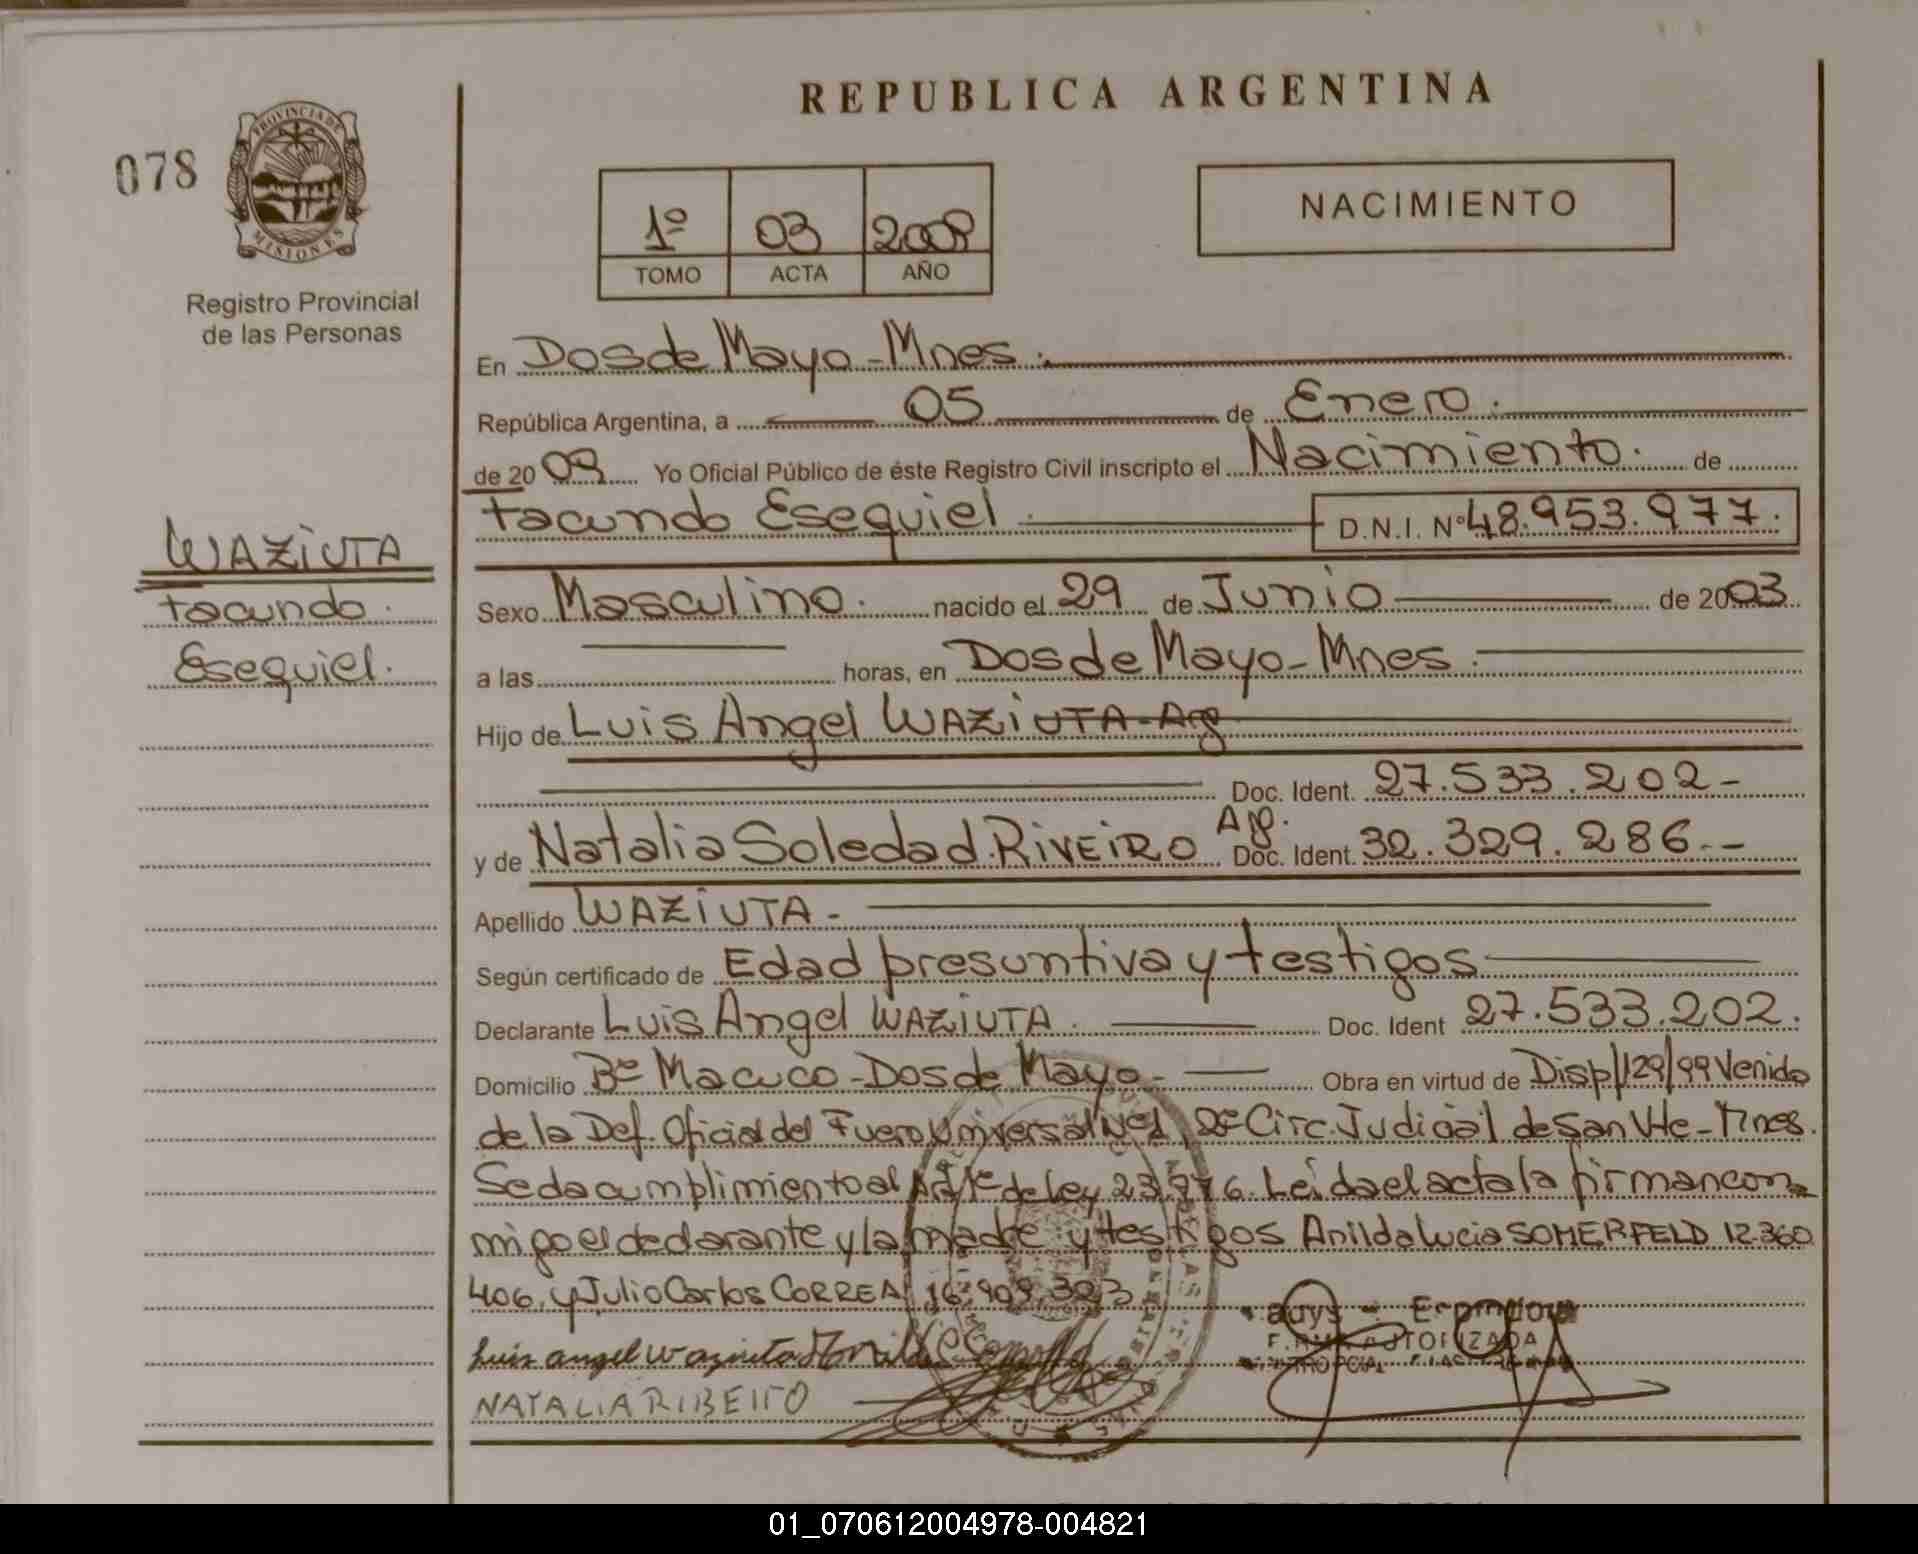 REPUBLICA ARGENTINA
078
PROVINCIA DE
MISIONES
Registro Provincial
de las Personas
1º 03 2009
TOMO ACTA AÑO
NACIMIENTO
En Dos de Mayo - Mnes.
República Argentina, a 05 de Enero.
de 2009 Yo Oficial Público de éste Registro Civil inscripto el Nacimiento. de
Facundo Esequiel D.N.I. Nº 48.953.977.
WAZIUTA
Facundo.
Esequiel.
Sexo Masculino. nacido el 29 de Junio de 2003
a las horas, en Dos de Mayo - Mnes.
Hijo de Luis Angel WAZIUTA - Ag
Doc. Ident. 27.533.202 -
y de Natalia Soledad RIVEIRO Ag. Doc. Ident. 32.329.286.--
Apellido WAZIUTA -
Según certificado de Edad presuntiva y testigos
Declarante Luis Angel WAZIUTA. Doc. Ident 27.533.202.
Domicilio Bº Macuco - Dos de Mayo - Obra en virtud de Disp/129/99 Venido
de la Def. Oficial del Fuero Universal Nº1, 2º Circ. Judicial de San Vte - Mnes.
Se da cumplimiento al de Ley 23.776. Leída el acta la firman con
migo el declarante y la madre y testigos Anilda Lucia SOMERFELD 12.360
406, y Julio Carlos CORREA 16.909.303
Luis angel Waziuta
NATALIA RIBEIRO
FIRMA AUTORIZADA
01_070612004978-004821